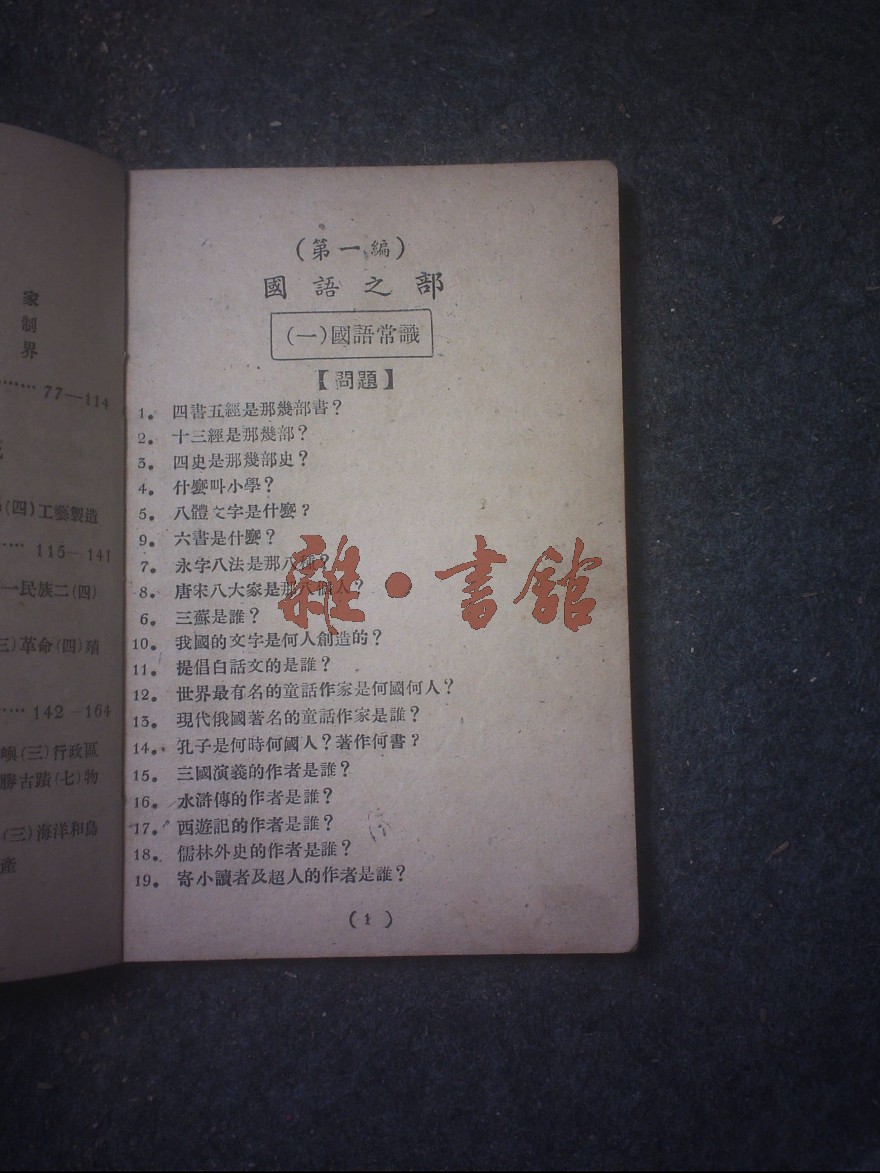 家
制
界
77—114
(四)工藝製造
115—141
一民族二(四)
三)革命(四)殖
142—164
嶼(三)行政區
勝古蹟(七)物
(三)海洋和島
產
(第一編)
國語之部
(一)國語常識
【問題】
1。 四書五經是那幾部書？
2。 十三經是那幾部？
3。 四史是那幾部史？
4。 什麼叫小學？
5。 八體文字是什麼？
9。 六書是什麼？
7。 永字八法是那八種？
8。 唐宋八大家是那八個人？
6。 三蘇是誰？
10。 我國的文字是何人創造的？
11。 提倡白話文的是誰？
12。 世界最有名的童話作家是何國何人？
13。 現代俄國著名的童話作家是誰？
14。 孔子是何時何國人？著作何書？
15。 三國演義的作者是誰？
16。 水滸傳的作者是誰？
17。 西遊記的作者是誰？
18。 儒林外史的作者是誰？
19。 寄小讀者及超人的作者是誰？
(1)
雜·書館